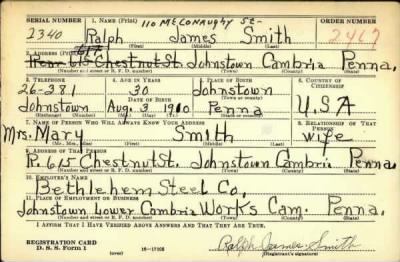 SERIAL NUMBER 1. NAME (Print) 110 McConaughy St-
2340 Ralph James Smith 2467
(First) (Middle) (Last)
2. ADDRESS (Print) 617
Rear 615 Chestnut St. Johnstown Cambria Penna.
(Number and street or R. F. D. number) (Town) (County) (State)
3. TELEPHONE 4. AGE IN YEARS 5. PLACE OF BIRTH 6. COUNTRY OF CITIZENSHIP
26-281 30 Johnstown
DATE OF BIRTH (Town or county)
Johnstown Aug. 3 1910 Penna U.S.A
(Exchange) (Mo.) (Day) (Yr.) (State or country)
7. NAME OF PERSON WHO WILL ALWAYS KNOW YOUR ADDRESS 8. RELATIONSHIP OF THAT PERSON
Mrs. Mary Smith wife
(Mr., Mrs., Miss) (First) (Middle) (Last)
9. ADDRESS OF THAT PERSON
R. 615 Chestnut St. Johnstown Cambria Penna
(Number and street or R. F. D. number) (Town) (County) (State)
10. EMPLOYER'S NAME
Bethlehem Steel Co.
11. PLACE OF EMPLOYMENT OR BUSINESS
Johnstown Lower Cambria Works Cam. Penna.
(Number and street or R. F. D. number) (Town) (County) (State)
I AFFIRM THAT I HAVE VERIFIED ABOVE ANSWERS AND THAT THEY ARE TRUE.
REGISTRATION CARD
D. S. S. Form 1 (over) 16—17105 Ralph James Smith
(Registrant's signature)